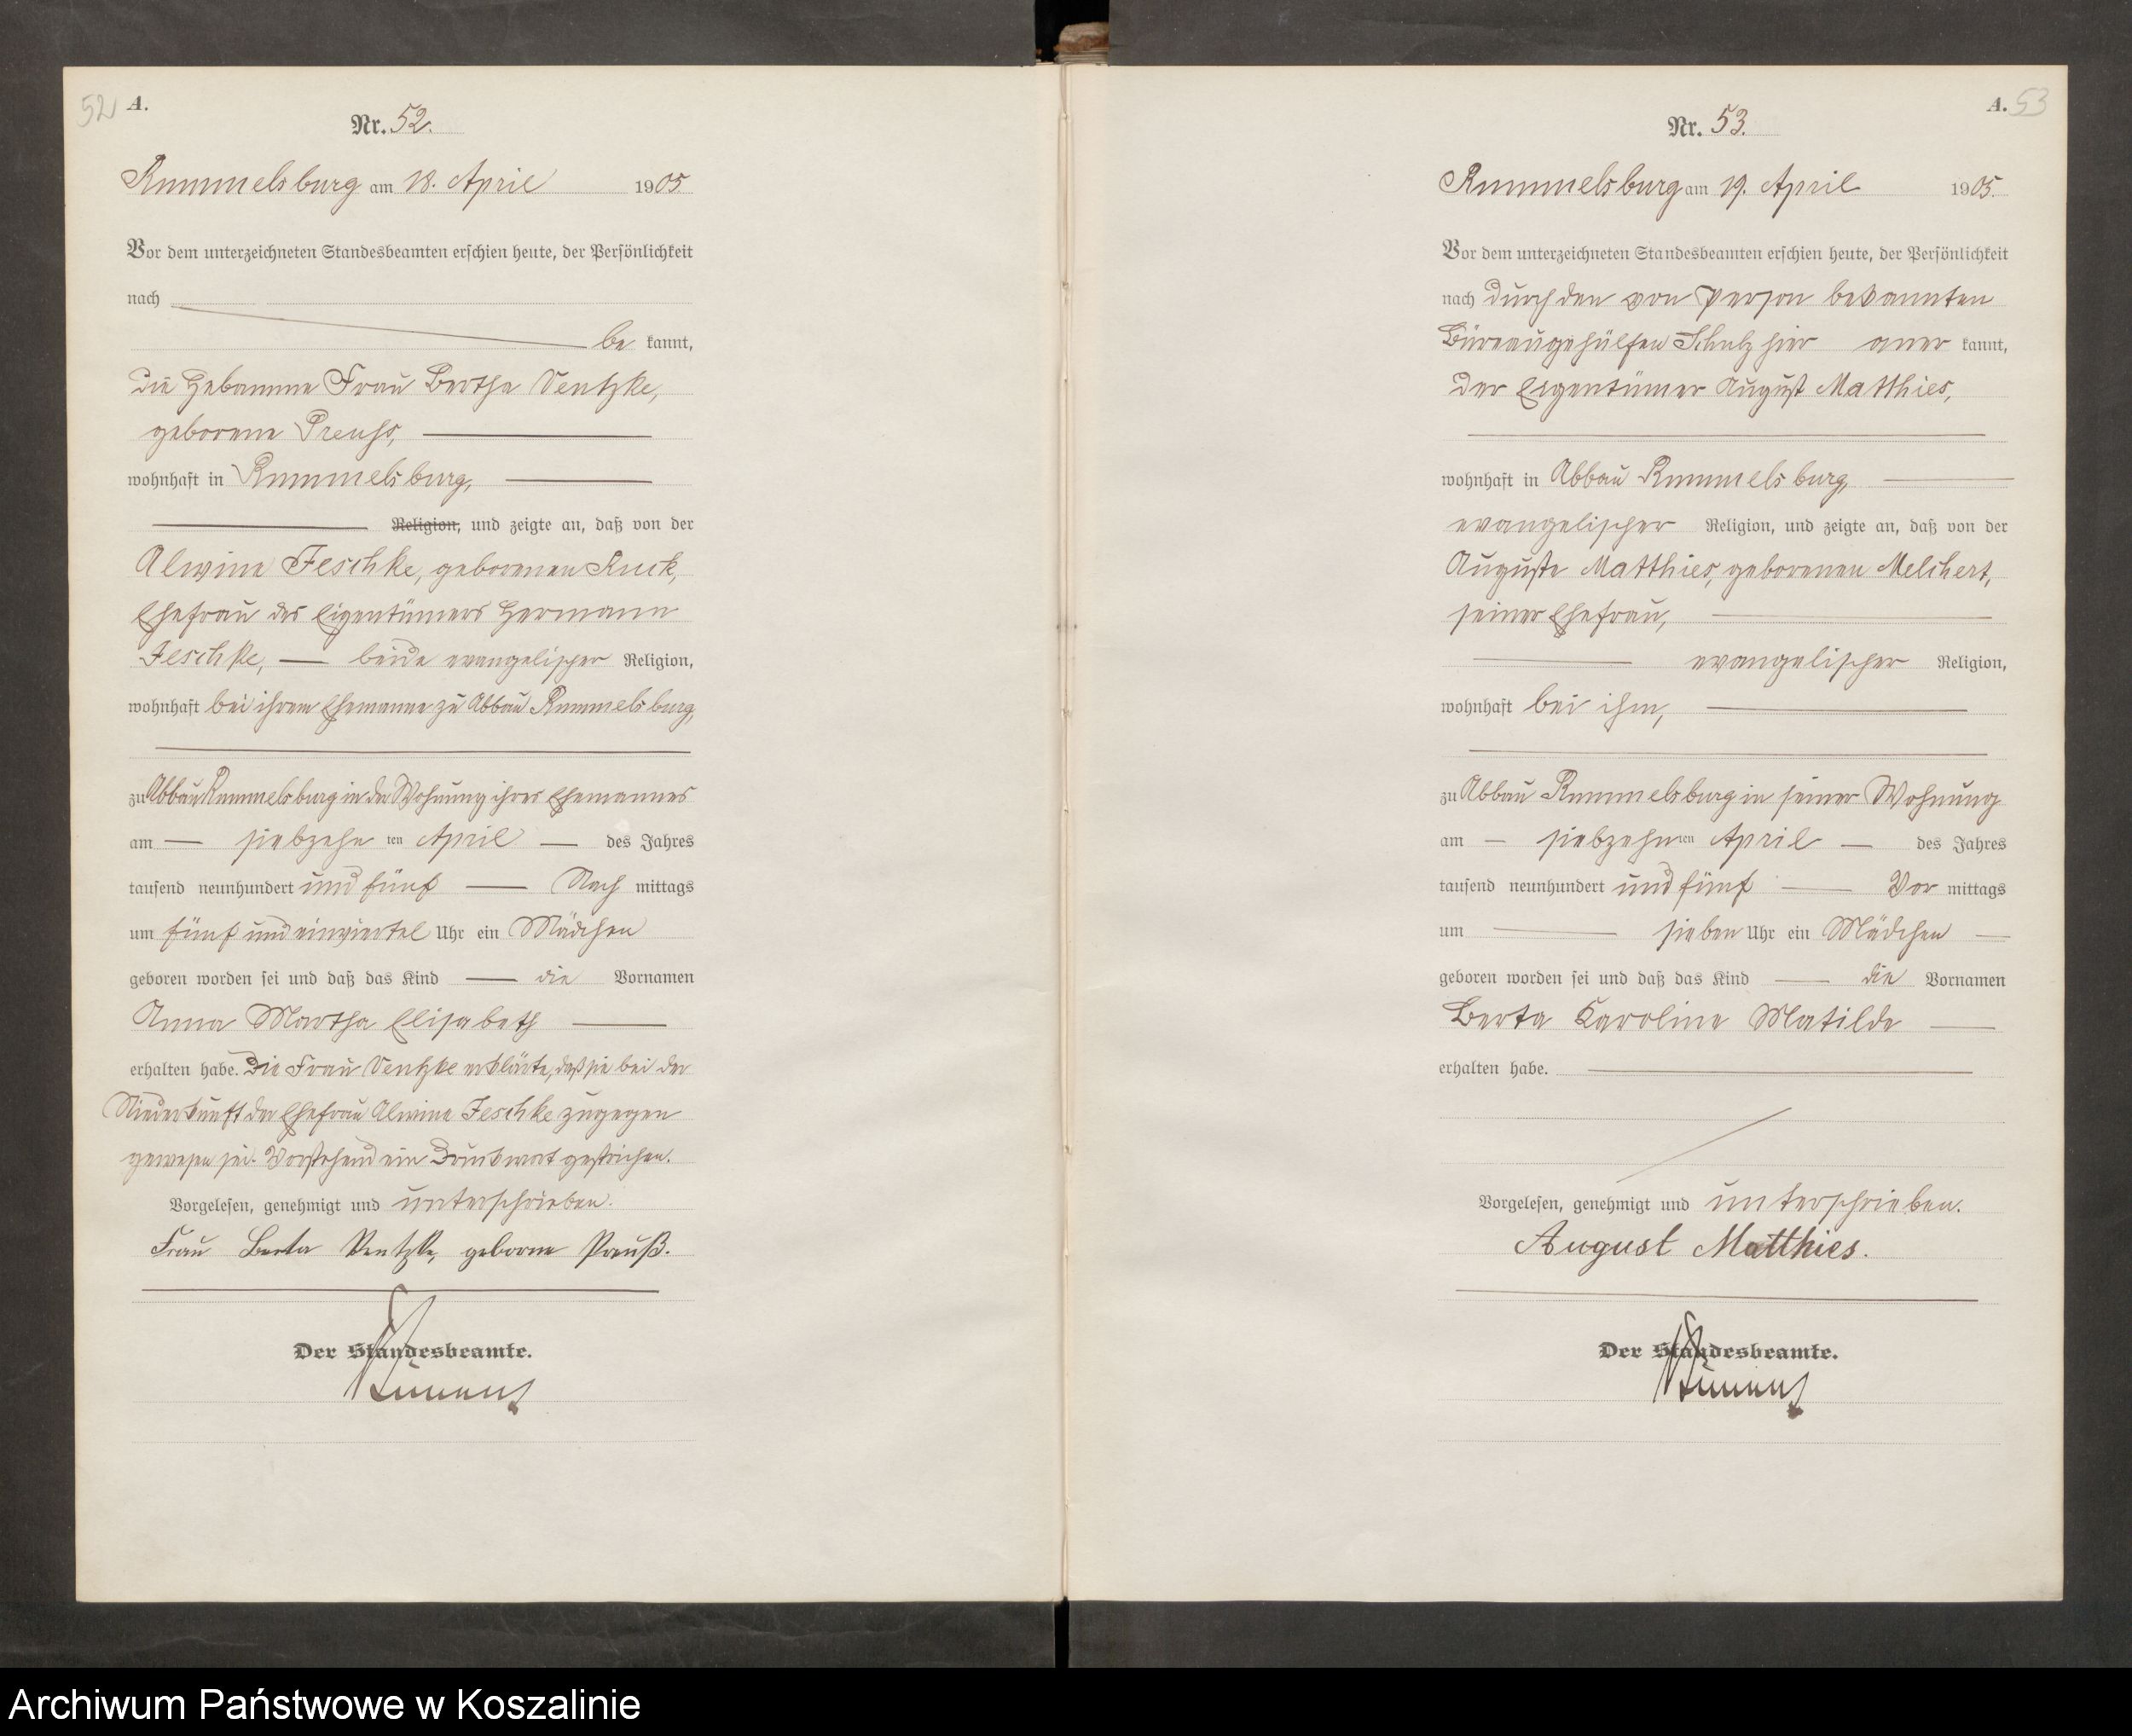 52
A.
Nr. 52.
Rummelsburg am 18. April 1905
Vor dem unterzeichneten Standesbeamten erschien heute, der Persönlichkeit
nach
be kannt,
die Hebamme Frau Bertha Ventzke,
geborene Preuss,
wohnhaft in Rummelsburg,
Religion, und zeigte an, daß von der
Alwine Jeschke, geborenen Ruck,
Ehefrau des Eigentümers Hermann
Jeschke, beide evangelischer Religion,
wohnhaft bei ihrem Ehemanne zu Abbau Rummelsburg,
zu Abbau Rummelsburg in der Wohnung ihres Ehemannes
am siebzehn ten April des Jahres
tausend neunhundert und fünf Nach mittags
um fünf und einviertel Uhr ein Mädchen
geboren worden sei und daß das Kind die Vornamen
Anna Martha Elisabeth
erhalten habe. Die Frau Ventzke erklärte, daß sie bei der
Niederkunft der Ehefrau Alwine Jeschke zugegen
gewesen sei. Vorstehend ein Druckwort gestrichen.
Vorgelesen, genehmigt und unterschrieben.
Frau Berta Ventzke, geborne Preuß.
Der Standesbeamte.
A. 53
Nr. 53.
Rummelsburg am 19. April 1905.
Vor dem unterzeichneten Standesbeamten erschien heute, der Persönlichkeit
nach durch den von Person bekannten
Büreaugehülfen Schulz hier aner kannt,
der Eigentümer August Matthies,
wohnhaft in Abbau Rummelsburg,
evangelischer Religion, und zeigte an, daß von der
Auguste Matthies, geborenen Melchert,
seiner Ehefrau,
evangelischer Religion,
wohnhaft bei ihm,
zu Abbau Rummelsburg in seiner Wohnung
am siebzehn ten April des Jahres
tausend neunhundert und fünf Vor mittags
um sieben Uhr ein Mädchen
geboren worden sei und daß das Kind die Vornamen
Berta Karoline Matilde
erhalten habe.
Vorgelesen, genehmigt und unterschrieben.
August Matthies.
Der Standesbeamte.
Archiwum Państwowe w Koszalinie